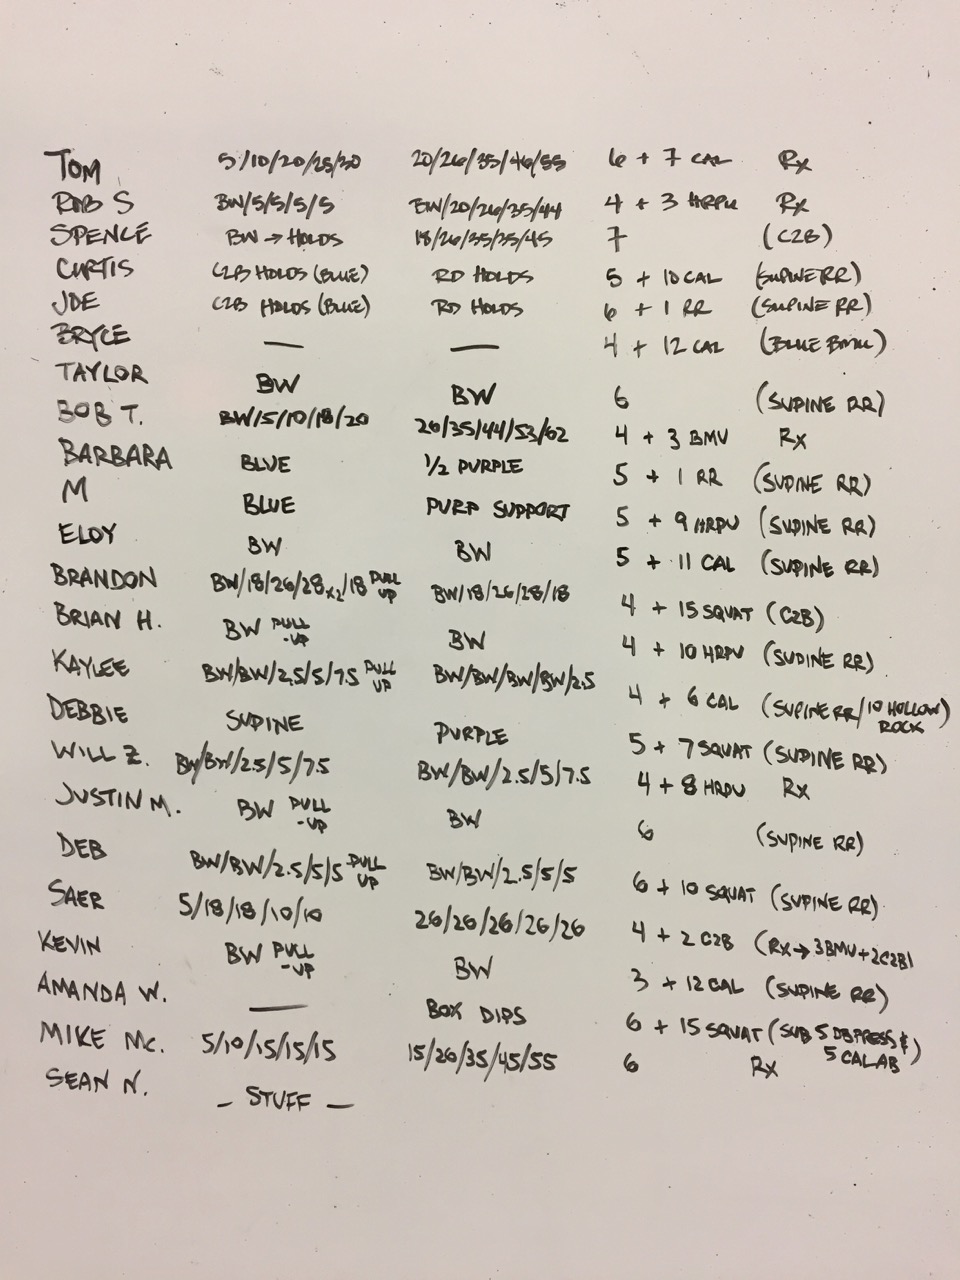 TOM 5/10/20/25/30 20/26/35/46/55 6 + 7 CAL Rx
ROB S BW/5/5/5/5 BW/20/26/35/44 4 + 3 HRPU Rx
SPENCE BW → HOLDS 18/26/35/35/45 7 (C2B)
CURTIS C2B HOLDS (BLUE) RD HOLDS 5 + 10 CAL (SUPINE RR)
JOE C2B HOLDS (BLUE) RD HOLDS 6 + 1 RR (SUPINE RR)
BRYCE — — 4 + 12 CAL (BLUE BMU)
TAYLOR BW BW 6 (SUPINE RR)
BOB T. BW/15/10/18/20 26/35/44/53/62 4 + 3 BMU Rx
BARBARA BLUE 1/2 PURPLE 5 + 1 RR (SUPINE RR)
M BLUE PURP SUPPORT 5 + 9 HRPU (SUPINE RR)
ELOY BW BW 5 + 11 CAL (SUPINE RR)
BRANDON BW/18/26/28x2/18 PULL UP BW/18/26/28/18 4 + 15 SQUAT (C2B)
BRIAN H. BW PULL-UP BW 4 + 10 HRPU (SUPINE RR)
KAYLEE BW/BW/2.5/5/7.5 PULL UP BW/BW/BW/BW/2.5 4 + 6 CAL (SUPINE RR/10 HOLLOW ROCK)
DEBBIE SUPINE PURPLE 5 + 7 SQUAT (SUPINE RR)
WILL Z. BW/BW/2.5/5/7.5 BW/BW/2.5/5/7.5 4 + 8 HRPU Rx
JUSTIN M. BW PULL-UP BW 6 (SUPINE RR)
DEB BW/BW/2.5/5/5 PULL UP BW/BW/2.5/5/5 6 + 10 SQUAT (SUPINE RR)
SAER 5/18/18/10/10 26/26/26/26/26 4 + 2 C2B (Rx → 3 BMU + 2 C2B)
KEVIN BW PULL-UP BW 3 + 12 CAL (SUPINE RR)
AMANDA W. — BOX DIPS 6 + 15 SQUAT (SUB 5 DB PRESS & 5 CAL AB)
MIKE Mc. 5/10/15/15/15 15/26/35/45/55 6 Rx
SEAN N. — STUFF —